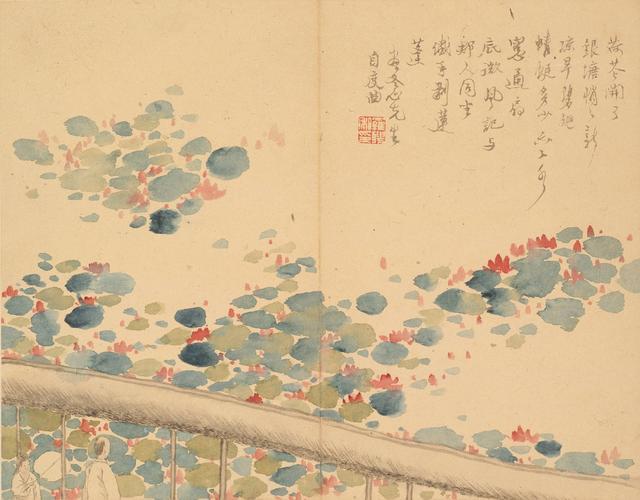 荷花開了
銀塘悄〻新
涼早碧翅
蜻蜓多少六六水
窗通扇
底微風記得
那人同坐
纖手剝蓮
蓬
書冬心先生
自度曲